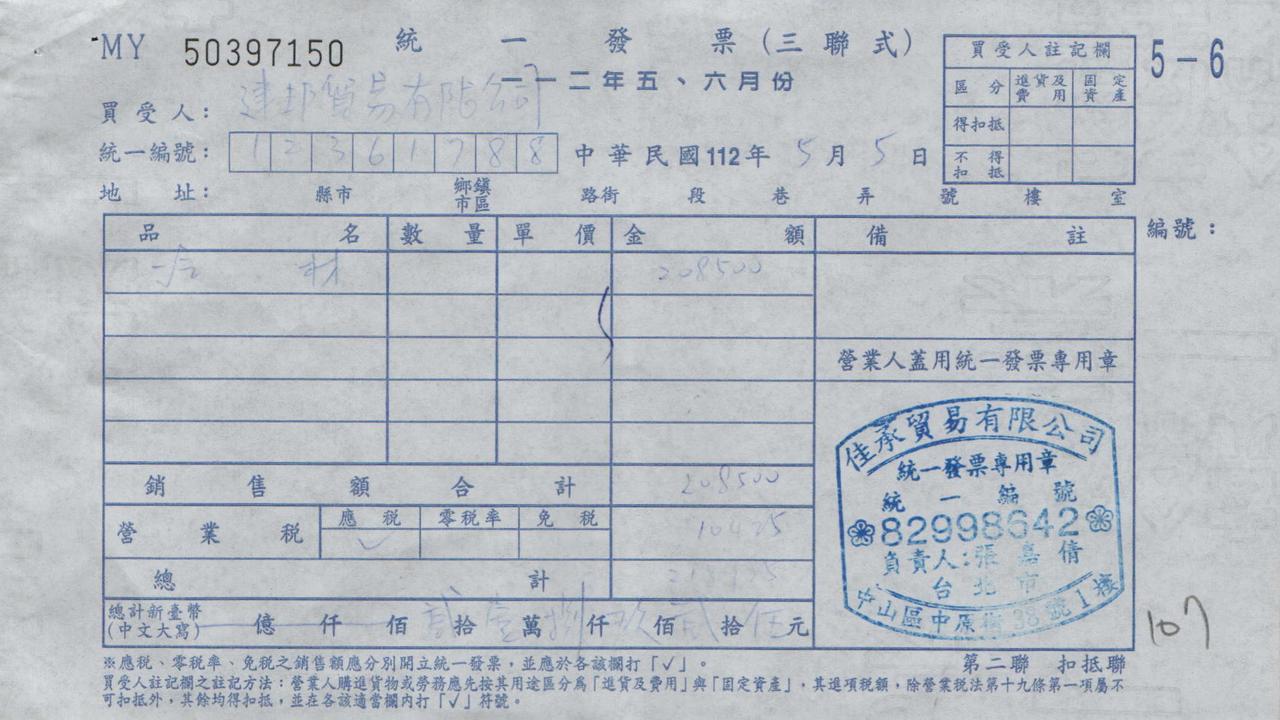 MY 50397150 統一發票(三聯式)
一一二年五、六月份
5-6
買受人:建邦貿易有限公司
統一編號:12361788 中華民國112年5月5日
地址: 縣市 鄉鎮市區 路街 段 巷 弄 號 樓 室
買受人註記欄
區分 進貨及費用 固定資產
得扣抵
不得扣抵
編號:
品名 數量 單價 金額 備註
材 208500
營業人蓋用統一發票專用章
銷售額合計 208500
營業稅 應稅 零稅率 免稅 10425
✓
總計
總計新臺幣(中文大寫) 億 仟 佰 貳 拾 壹 萬 捌 仟 玖 佰 貳 拾 伍 元
佳承貿易有限公司
統一發票專用章
統一編號
82998642
負責人:張嘉倩
台北市
中山區中原街38號1樓
107
※應稅、零稅率、免稅之銷售額應分別開立統一發票,並應於各該欄打「✓」。
第二聯 扣抵聯
買受人註記欄之註記方法:營業人購進貨物或勞務應先按其用途區分為「進貨及費用」與「固定資產」,其進項稅額,除營業稅法第十九條第一項屬不
可扣抵外,其餘均得扣抵,並在各該適當欄內打「✓」符號。